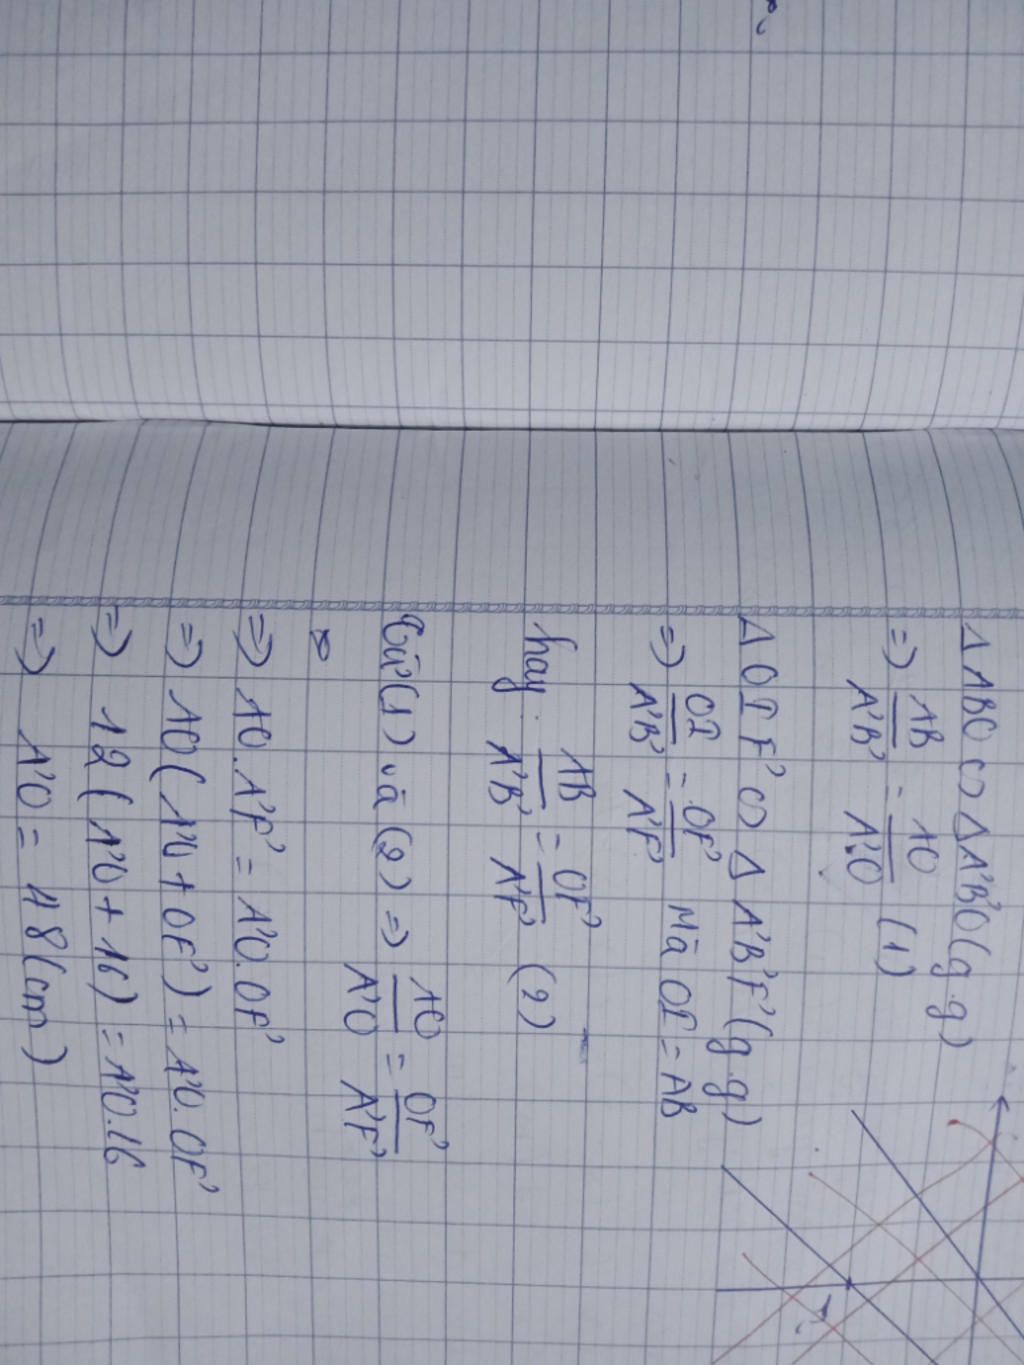 Δ ABO ∽ Δ A'B'O (g.g)
=> AB/A'B' = AO/A'O (1)
Δ OIF' ∽ Δ A'B'F' (g.g)
=> OI/A'B' = OF'/A'F' Mà OI = AB
hay AB/A'B' = OF'/A'F' (2)
Từ (1) và (2) => AO/A'O = OF'/A'F'
=> AO.A'F' = A'O.OF'
=> AO(A'O + OF') = A'O.OF'
=> 12(A'O + 16) = A'O.16
=> A'O = 48(cm)